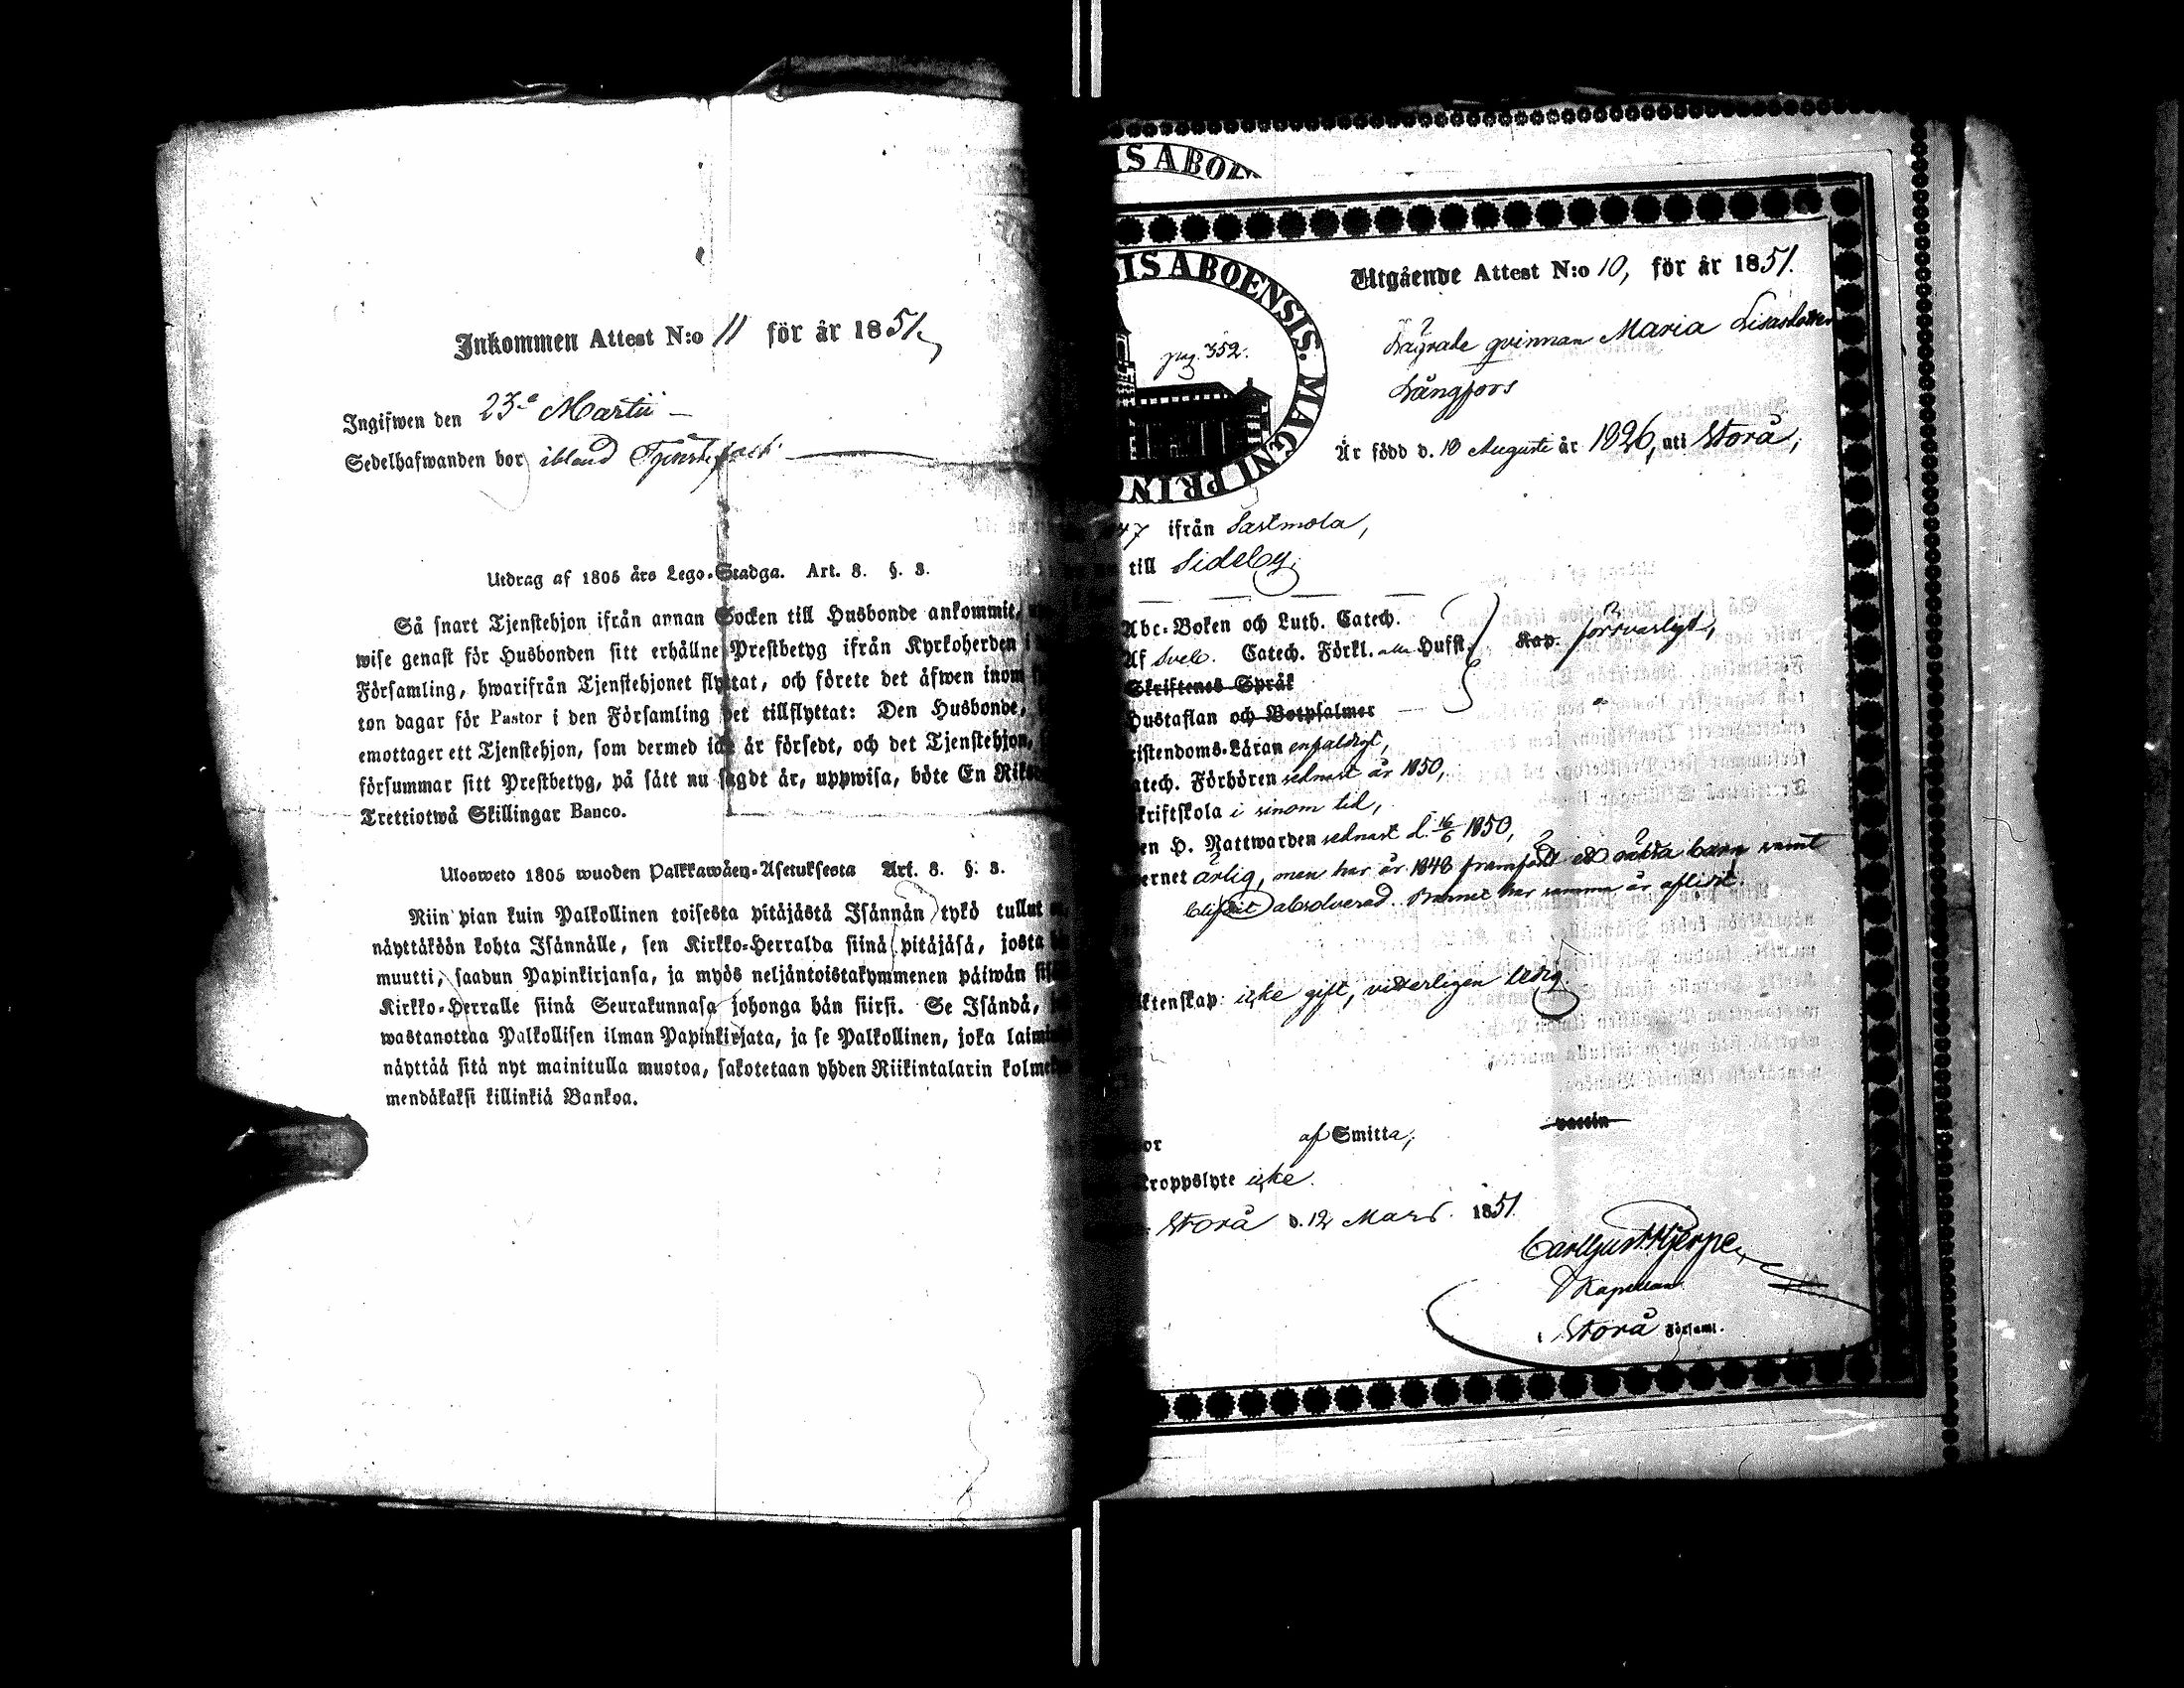 Inkommen Attest N:o 11 för år 1851
Ingifwen den 23e Martii
Sedelhafwanden bor ibland
Utdrag af 1805 års Lego-Stadga. Art. 8. §. 3.
Så snart Tjenstehjon ifrån annan Socken till Husbonde ankommit,
wise genast för Husbonden sitt erhållne Prestbetyg ifrån Kyrkoherden i
Församling, hwarifrån Tjenstehjonet flyttat, och förete det äfwen inom
ton dagar för Pastor i den Församling det tillflyttat: Den Husbonde,
emottager ett Tjenstehjon, som dermed icke är försedt, och det Tjenstehjon,
försummar sitt Prestbetyg, på sätt nu sagdt är, uppwisa, böte En
Trettiotwå Skillingar Banco.
Ulosweto 1805 wuoden Palkkawäen-Asetuksesta Art. 8. §. 3.
Niin pian kuin Palkollinen toisesta pitäjästä Isännän tykö tullut
näyttäköön kohta Isännälle, sen Kirkko-Herralda siinä pitäjäsä, josta
muutti, saadun Papinkirjansa, ja myös neljäntoistakymmenen päiwän
Kirkko-Herralle siinä Seurakunnasa johonga hän siirsi. Se Isändä,
wastanottaa Palkollisen ilman Papinkirjata, ja se Palkollinen, joka
näyttää sitä nyt mainitulla muotoa, sakotetaan yhden Riikintalarin
mendäkaksi killinkiä Bankoa.
IS ABOEN
SIS ABOENSIS. MAGNI PRIN
pag. 352.
Utgående Attest N:o 10, för år 1851.
qvinnan Maria Lisasdotter
Långfors
Är född d. 10 Augusti år 1826, uti Storå,
47 ifrån Sastmola,
till Sideby.
Abc-Boken och Luth. Catech.
Af Sveb. Catech. Förkl. alla Hufst. Kap. försvarligt,
Skriftenes Språk
Hustaflan och Botpsalmer
istendoms-Läran enfaldigt,
atech. Förhören sednast år 1850,
kriftskola i sinom tid,
en H. Nattwarden sednast d. 16/6 1850,
ernet ärlig, men har år 1848 framfödt ett oäkta barn samt
blifvit absolverad. Barnet har samma år aflidit.
ktenskap: icke gift, vitterligen ledig.
or af Smitta, vaccin
Kroppslyte icke.
Storå d. 12 Mars 1851.
Carl Gust. Hjerpe
Kapellan
i Storå Församl.